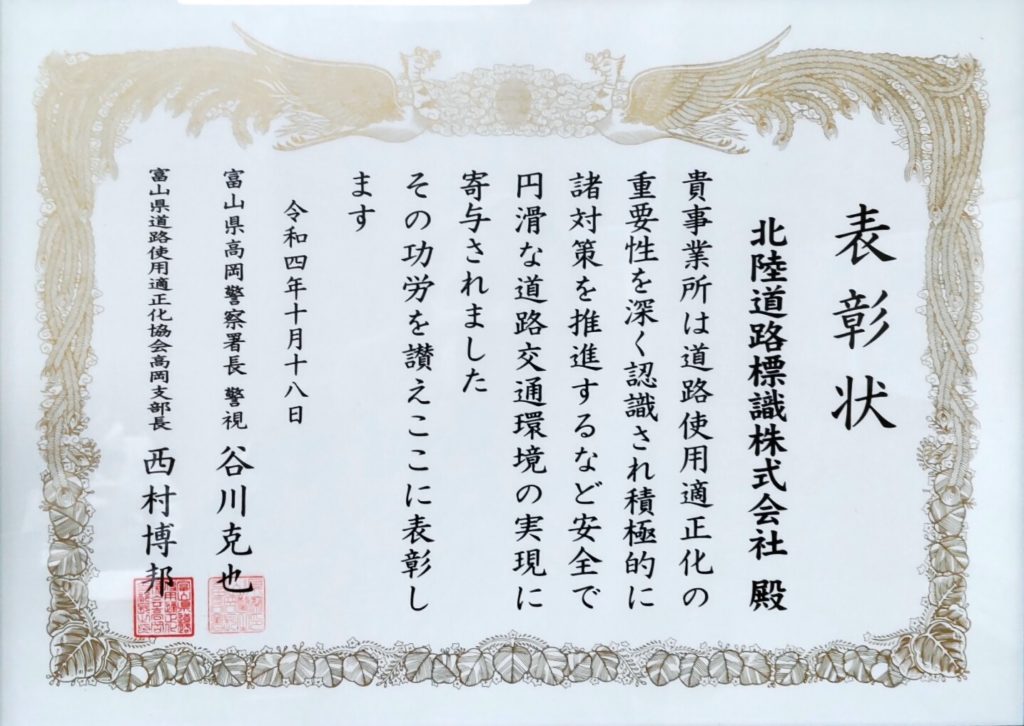 表彰状
北陸道路標識株式会社 殿
貴事業所は道路使用適正化の
重要性を深く認識され積極的に
諸対策を推進するなど安全で
円滑な道路交通環境の実現に
寄与されました
その功労を讃えここに表彰し
ます
令和四年十月十八日
富山県高岡警察署長 警視 谷川克也
富山県道路使用適正化協会高岡支部長 西村博邦